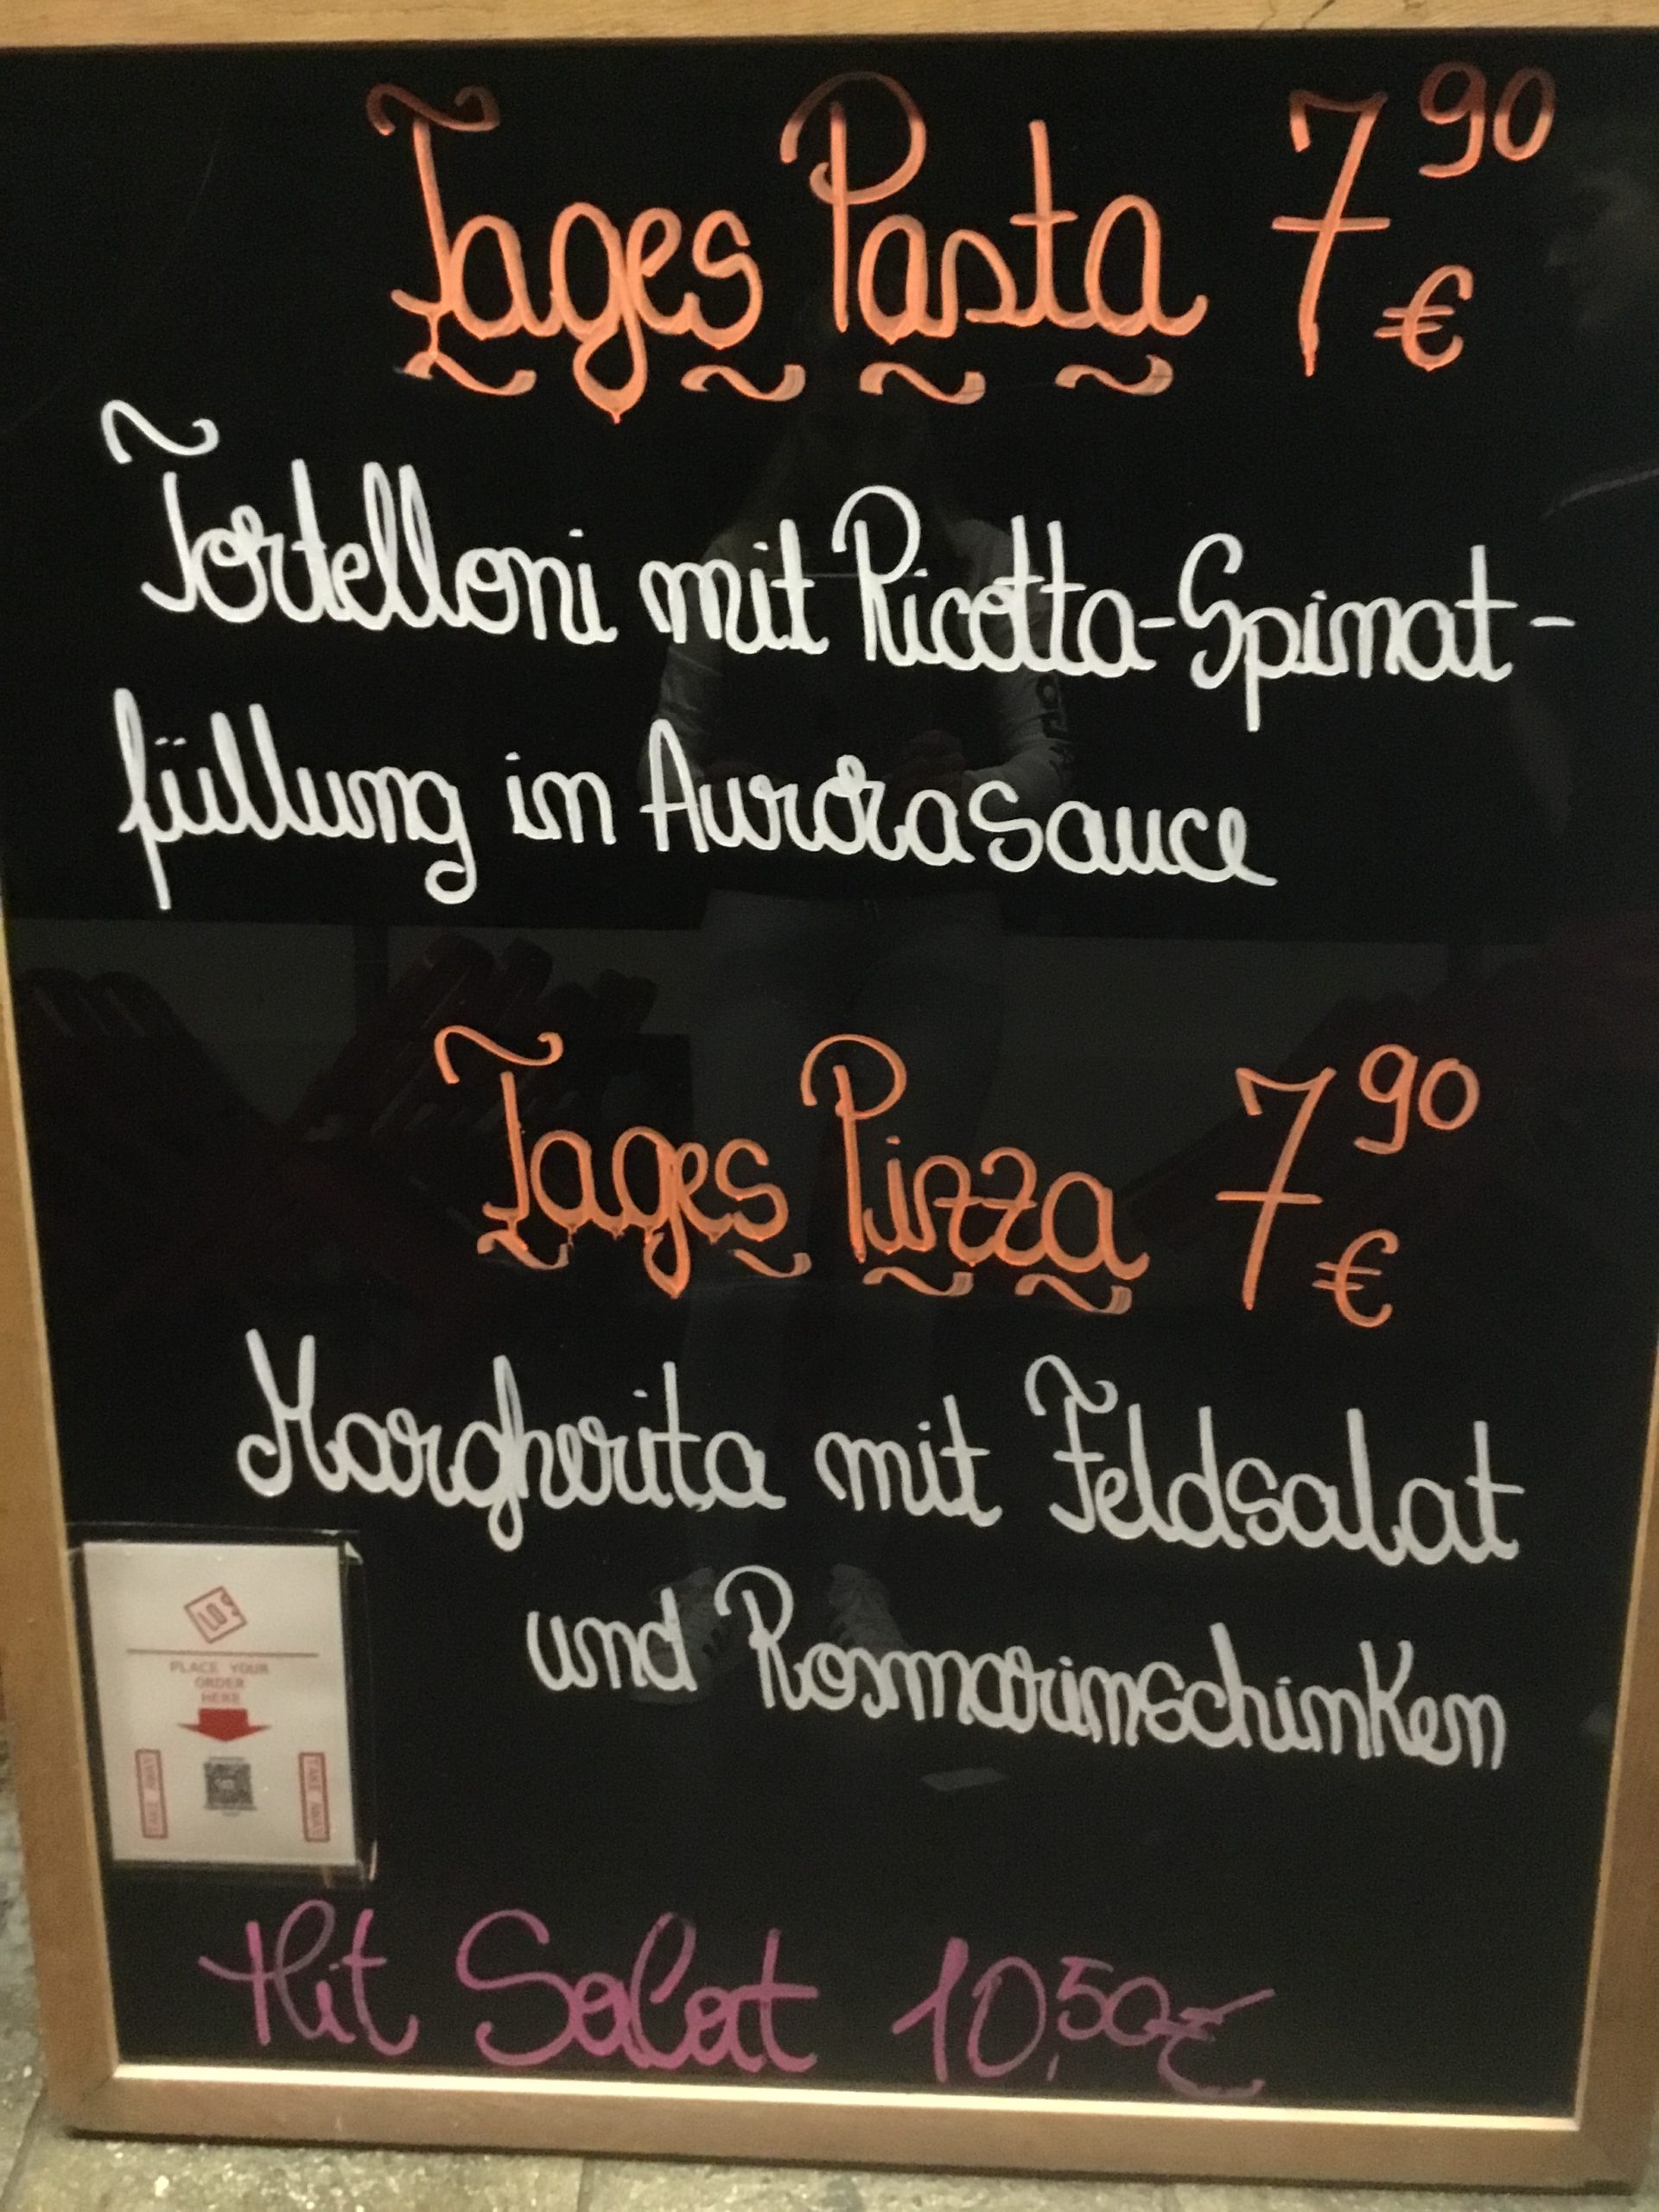 Tages Pasta 7 90 €
Tortelloni mit Ricotta-Spinat-
füllung in Aurorasauce
Tages Pizza 7 90 €
Margherita mit Feldsalat
und Rosmarinschinken
PLACE YOUR
ORDER
HERE
TAKE AWAY
Hit Salat 10,50€